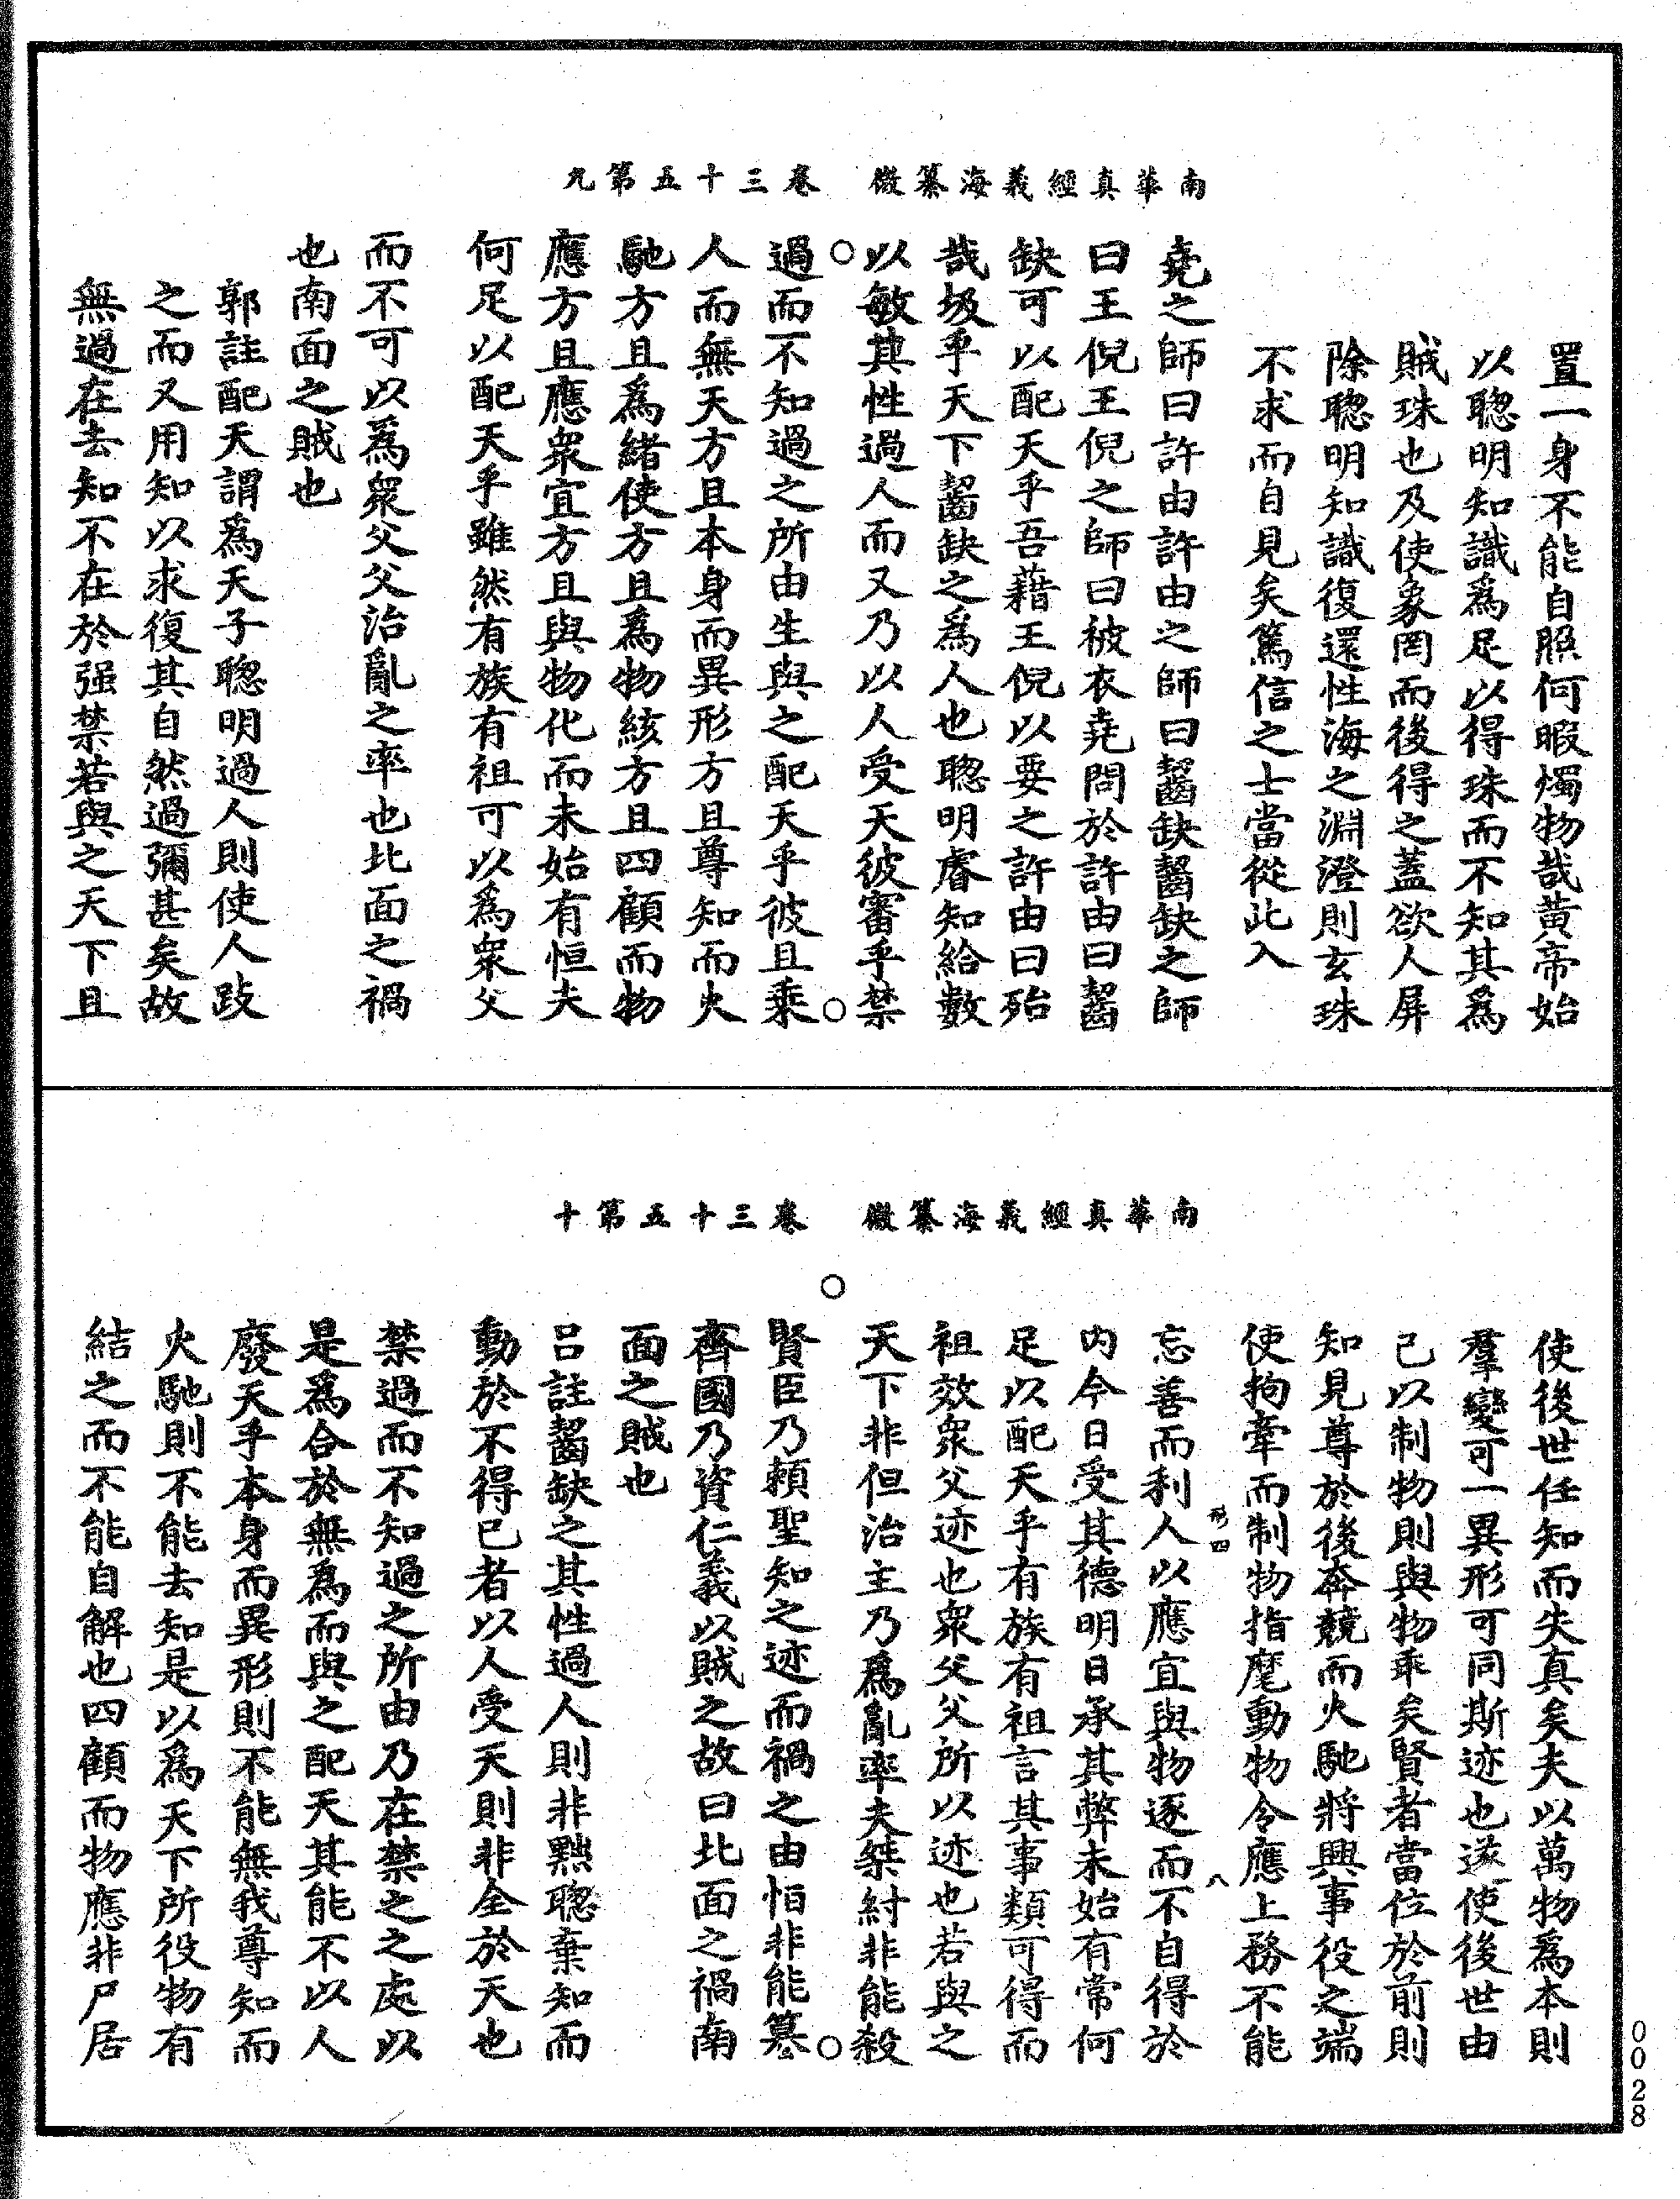 南華真經義海纂微　卷三十五第九
置一身不能自照何暇燭物哉黃帝始
以聰明知識爲足以得珠而不知其爲
賊珠也及使象罔而後得之蓋欲人屏
除聰明知識復還性海之淵澄則玄珠
不求而自見矣篤信之士當從此入
堯之師曰許由許由之師曰齧缺齧缺之師
曰王倪王倪之師曰被衣堯問於許由曰齧
缺可以配天乎吾藉王倪以要之許由曰殆
哉圾乎天下齧缺之爲人也聰明睿知給數
以敏其性過人而又乃以人受天彼審乎禁
過而不知過之所由生與之配天乎彼且乘
人而無天方且本身而異形方且尊知而火
馳方且爲緒使方且爲物絯方且四顧而物
應方且應衆宜方且與物化而未始有恒夫
何足以配天乎雖然有族有祖可以爲衆父
而不可以爲衆父父治亂之率也北面之禍
也南面之賊也
郭註配天謂爲天子聰明過人則使人跂
之而又用知以求復其自然過彌甚矣故
無過在去知不在於强禁若與之天下且
南華真經義海纂微　卷三十五第十
使後世任知而失真矣夫以萬物爲本則
羣變可一異形可同斯迹也遂使後世由
己以制物則與物乖矣賢者當位於前則
知見尊於後奔競而火馳將興事役之端
使拘牽而制物指麾動物令應上務不能
形四　八
忘善而利人以應宜與物逐而不自得於
内今日受其德明日承其弊未始有常何
足以配天乎有族有祖言其事類可得而
祖效衆父迹也衆父父所以迹也若與之
天下非但治主乃爲亂率夫桀紂非能殺
賢臣乃賴聖知之迹而禍之由怕非能篡
齊國乃資仁義以賊之故曰北面之禍南
面之賊也
吕註齧缺之其性過人則非黜聰棄知而
動於不得已者以人受天則非全於天也
禁過而不知過之所由乃在禁之之處以
是爲合於無爲而與之配天其能不以人
廢天乎本身而異形則不能無我尊知而
火馳則不能去知是以爲天下所役物有
結之而不能自解也四顧而物應非尸居
0028